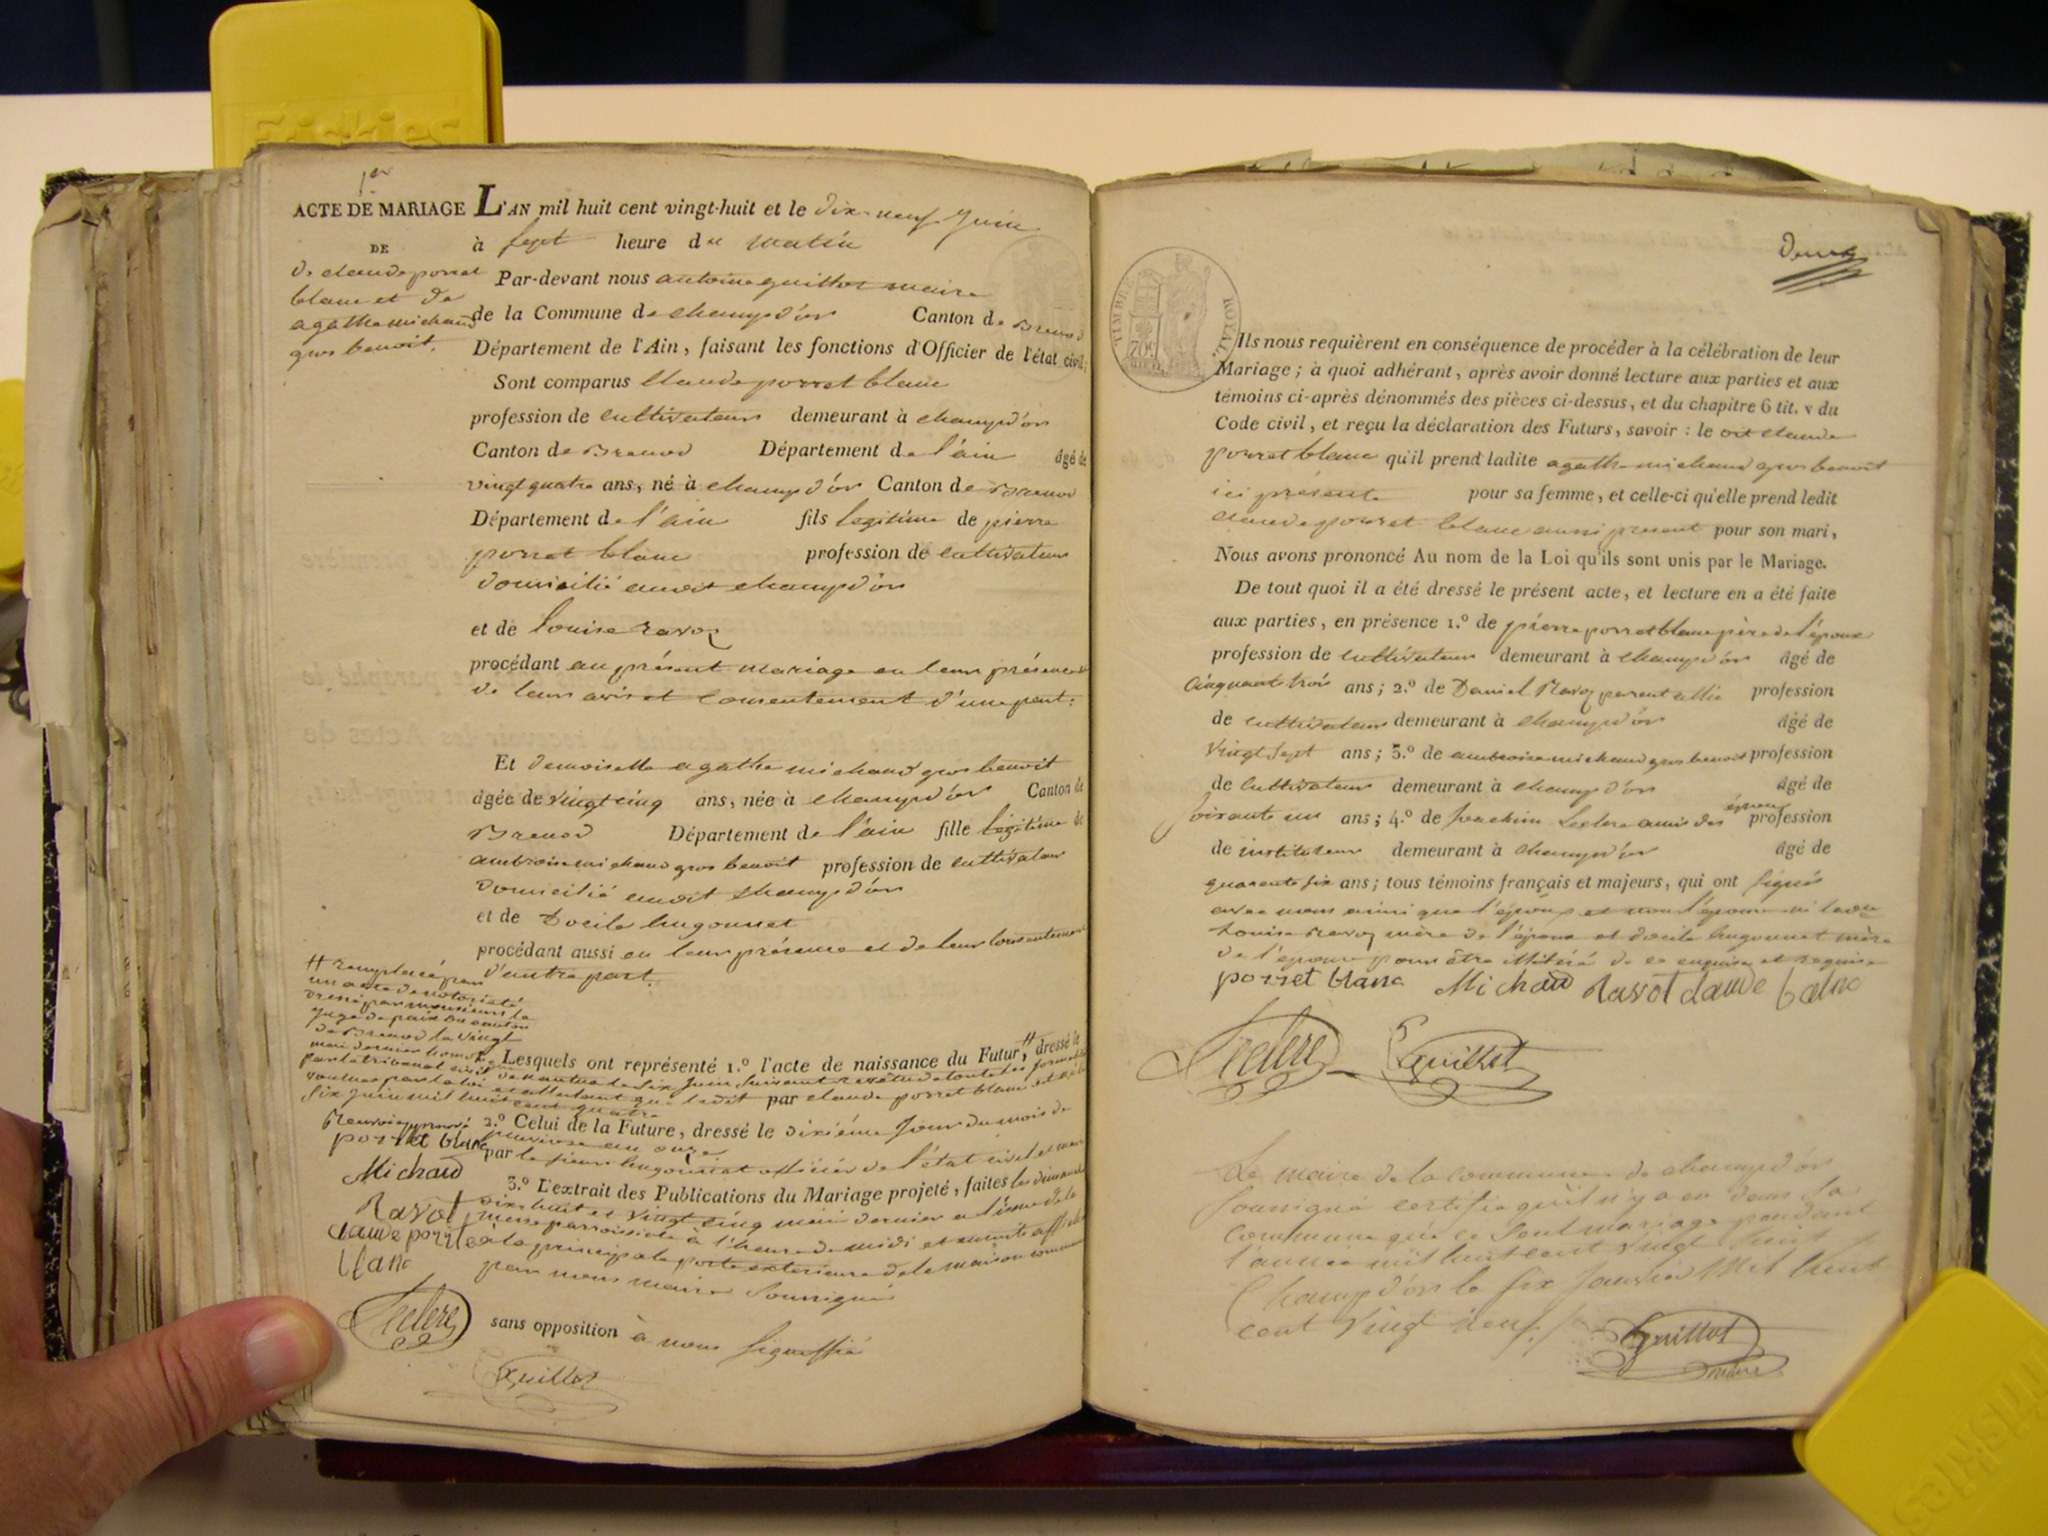 1er
ACTE DE MARIAGE
DE
de claude porret
blanc et de
agathe michaud
gros benoit.
L'AN mil huit cent vingt-huit et le dix-neuf juin
à sept heure du matin
Par-devant nous antoine guillot maire
de la Commune de champd'or Canton de Brenod
Département de l'Ain, faisant les fonctions d'Officier de l'état civil;
Sont comparus Claude porret blanc
profession de cultivateur demeurant à champd'or
Canton de Brenod Département de l'ain âgé de
vingt quatre ans, né à champd'or Canton de Brenod
Département de l'ain fils legitime de pierre
porret blanc profession de cultivateur
domicilié audit champd'or
et de louise ravoz
procédant au présent mariage en leur présence
de leur avis et consentement d'une part.
Et demoiselle agathe michaud gros benoit
âgée de vingt cinq ans, née à champd'or Canton de
Brenod Département de l'ain fille légitime de
ambroise michaud gros benoit profession de cultivateur
domicilié audit champd'or
et de Docile hugonnet
procédant aussi en leur présence et de leur consentement
d'autre part.
# remplacé par
un acte de notorieté
dressé par monsieur le
juge de paix du canton
de Brenod le vingt
mai dernier
par le tribunal civil
voulues par la loi
six juin mil huit cent quatre
Renvoi approuvé
porret blanc
Michaud
Ravot
claude porret
blanc
Leclerc
Lesquels ont représenté 1.° l'acte de naissance du Futur, # dressé le
de nantua le six juin suivant revêtu de toute les formalités
et attestant que ledit par claude porret blanc est né le
2.° Celui de la Future, dressé le dixième jour du mois de
pluviose an onze
par le sieur hugonnet officier de l'état civil
3.° L'extrait des Publications du Mariage projeté, faites les dimanches
dix huit et vingt cinq mai dernier a l'issue de la
messe parroissiale à l'heure de midi et ensuite affiché
a la principale porte exterieure de la maison commune
par nous maire soussigné
sans opposition à nous signiffié
Guillot
deux
TIMBRE ROYAL
70c
Ils nous requièrent en conséquence de procéder à la célébration de leur
Mariage; à quoi adhérant, après avoir donné lecture aux parties et aux
témoins ci-après dénommés des pièces ci-dessus, et du chapitre 6 tit. v du
Code civil, et reçu la déclaration des Futurs, savoir: le dit claude
porret blanc qu'il prend ladite agathe michaud gros benoit
ici présente pour sa femme, et celle-ci qu'elle prend ledit
claude porret blanc aussi présent pour son mari,
Nous avons prononcé Au nom de la Loi qu'ils sont unis par le Mariage.
De tout quoi il a été dressé le présent acte, et lecture en a été faite
aux parties, en présence 1.° de pierre porret blanc père de l'époux
profession de cultivateur demeurant à champd'or âgé de
cinquante trois ans; 2.° de Daniel Ravoz parent allié profession
de cultivateur demeurant à champd'or âgé de
vingt sept ans; 3.° de ambroise michaud gros benoit profession
de cultivateur demeurant à champd'or âgé de
soixante un ans; 4.° de Joachim Leclerc amis des époux profession
de instituteur demeurant à champd'or âgé de
quarante six ans; tous témoins français et majeurs, qui ont signés
avec nous ainsi que l'époux et non l'épouse ni
Louise Ravoz mère de l'époux et docile hugonnet mère
de l'épouse pour être illitéré de ce enquise et requise
porret blanc Michaud Ravot claude blanc
Leclerc Guillot
Le maire de la commune de champd'or
soussigné certifie qu'il n'y a eu dans la
commune que ce seul mariage pendant
l'année mil huit cent vingt huit
Champd'or le six janvier Mil huit
cent vingt neuf.
Guillot
maire